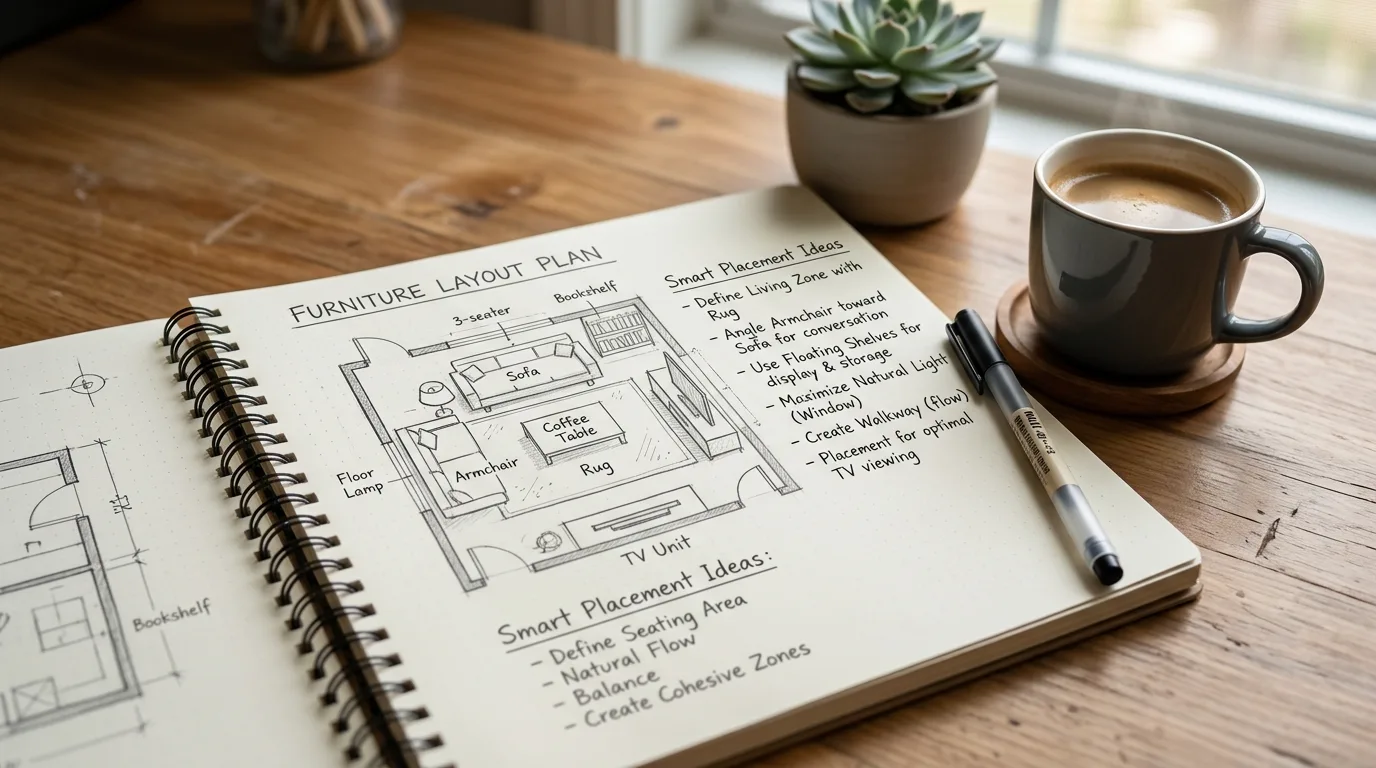 FURNITURE LAYOUT PLAN
3-seater
Bookshelf
Sofa
Coffee
Table
Armchair
Rug
Floor
Lamp
TV Unit
Smart Placement Ideas
- Define Living Zone with
Rug
- Angle Armchair toward
Sofa for conversation
- Use Floating Shelves for
display & storage
- Maximize Natural Light
(Window)
- Create Walkway (flow)
- Placement for optimal
TV viewing
Smart Placement Ideas:
- Define Seating Area
- Natural Flow
- Balance
- Create Cohesive Zones
Bookshelf